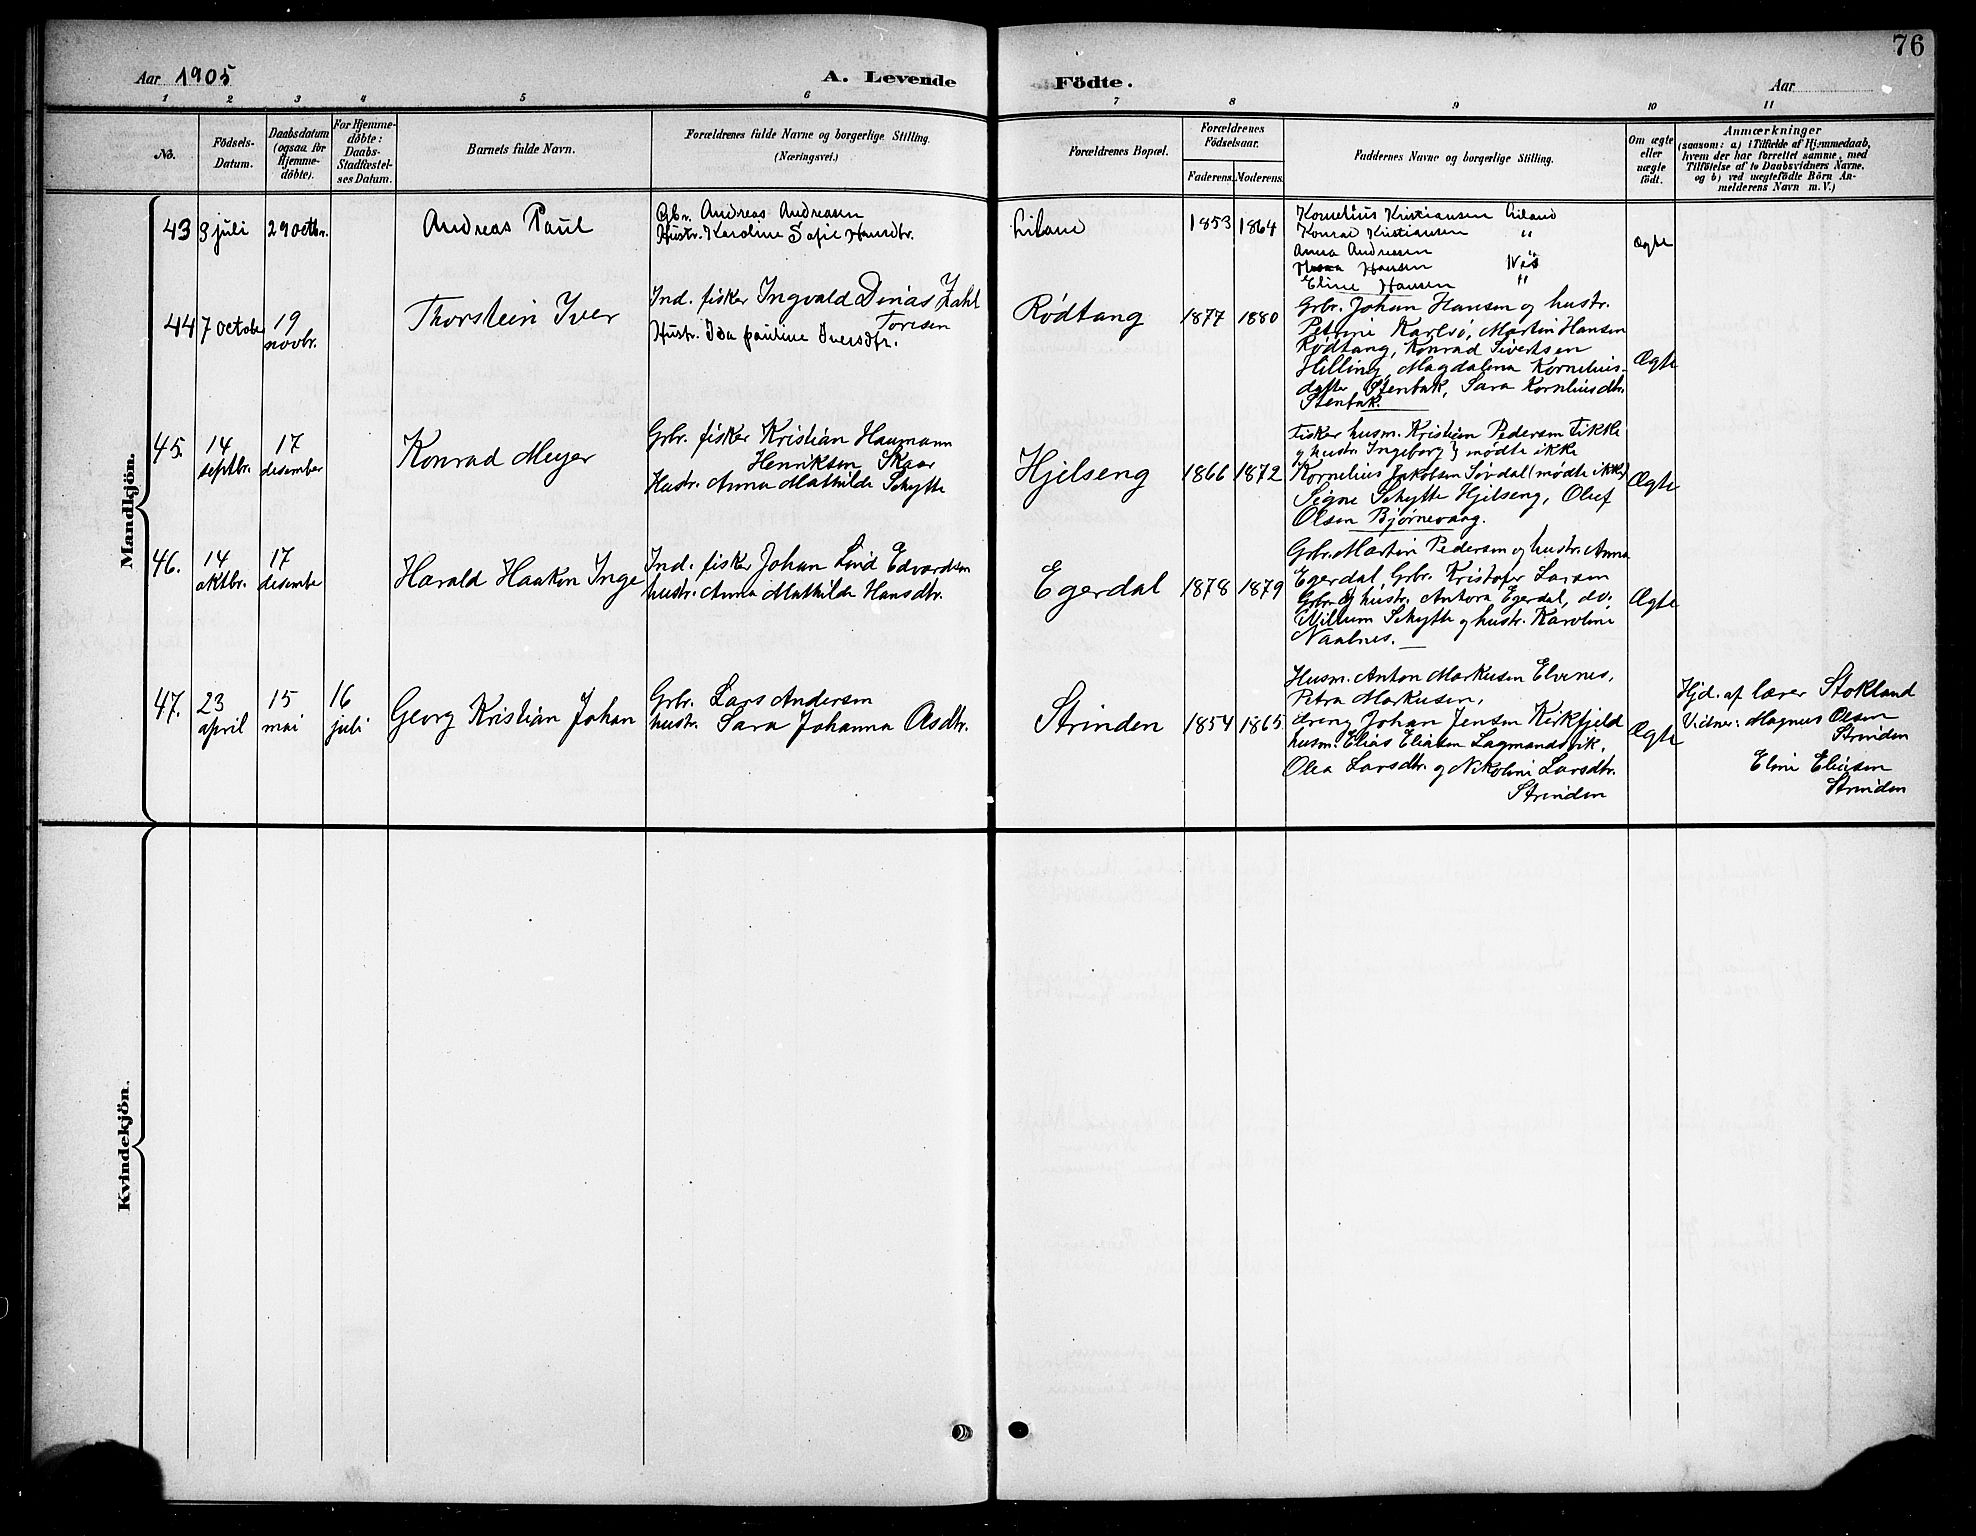 76
Aar 1905
A. Levende Födte.
Aar
1 2 3 4 5 6 7 8 9 10 11
No.
Födsels-
Datum.
Daabsdatum
(ogsaa for
Hjemme-
döbte).
For Hjemme-
döbte:
Daabs-
Stadfæstel-
ses Datum.
Barnets fulde Navn.
Forældrenes fulde Navne og borgerlige Stilling.
(Næringsvei.)
Forældrenes Bopæl.
Forældrenes
Födselsaar.
Faderens. Moderens.
Faddernes Navne og borgerlige Stilling.
Om ægte
eller
uægte
födt.
Anmærkninger
(saasom: a) i Tilfælde af Hjemmedaab,
hvem der har forrettet samme, med
Tilföielse af to Daabsvidners Navne,
og b) ved uægtefödte Börn An-
melderens Navn m. V.)
Mandkjön.
43 9 juli 29 octbr.
Andreas Paul
Gbr. Andreas Andreasen
Hustr. Karoline Sofie Hansdtr.
Liland
1853 1864
Kornelius Kristiansen Liland
Konrad Kristiansen "
Anna Andresen
Hansen Næs
Eline Hansen "
Ægte
44 7 octobr 19
novbr.
Thorstein Iver
Ind. fisker Ingvald Dinas Zahl
Toresen
Hustr. Ida pauline Iversdtr.
Rødtang
1877 1880
Grbr. Johan Hansen og hustr.
Petrine Karlsö, Martin Hansen
Rødtang, Konrad Sivertsen
Hilling, Magdalena Kornelius-
datter Stenbak, Sara Kornliusdtr.
Stenbak.
Ægte
45. 14
septbr. 17
desember
Konrad Meyer
Grbr. fisker Kristian Haumann
Henriksen Skaar
Hustr. Anna Mathilde Schytte
Hjelseng
1866 1872
Fisker husm. Kristian Pedersen Fikke
og hustr. Ingeborg } mødte ikke
Kornelius Jakobsen Sövdal (mødte ikke)
Signe Schytte Hjelseng, Oluf
Olsen Bjørnevang.
Ægte
46. 14
oktbr. 17
desembe
Harald Haakon Inge
Ind. fisker Johan Lind Edvardsen
hustr. Anna Mathilde Hansdtr.
Egerdal
1878 1879
Grbr. Martin Pedersen og hustr. Anna
Egerdal, Grbr. Kristofer Larsen
Grbr. og hustr. Antora Egerdal, do.
Villum Schytte og hustr. Karoline
Naalnes.
Ægte
47. 23
april 15
mai 16
juli
Georg Kristian Johan
Grbr. Lars Andersen
hustr. Sara Johanna Asdtr.
Strinden
1854 1865
Husm. Anton Markusen Elvenes,
Petra Markusen,
dreng Johan Jensen Kirkfjeld
husm. Elias Eliasen Lagmandsvik.
Olea Larsdtr. og Nikoline Larsdtr.
Strinden
Ægte
Hjd. af lærer Stokland
Vidner: Magnus Olsen
Strinden
Eline Eliasen
Strinden
Kvindekjön.